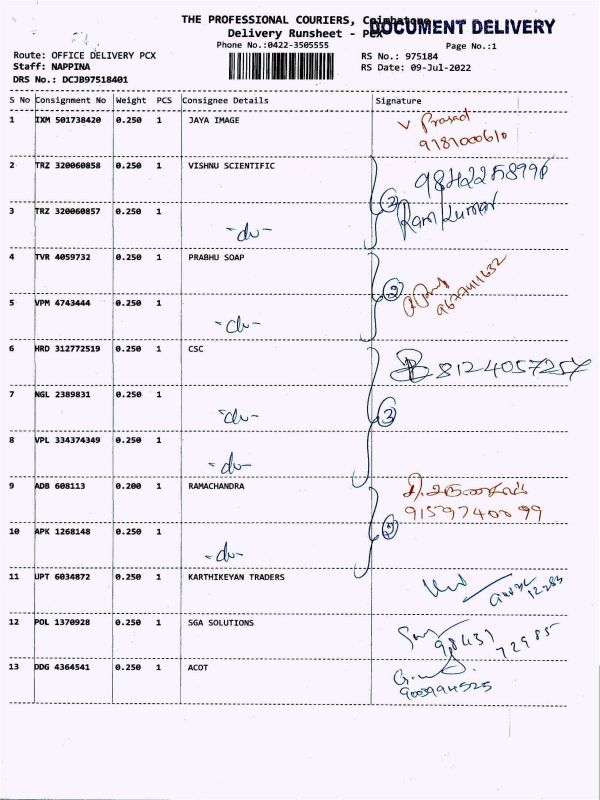 THE PROFESSIONAL COURIERS, Coimbatore
DOCUMENT DELIVERY
Delivery Runsheet - PCX
Phone No.:0422-3505555
Page No.:1
Route: OFFICE DELIVERY PCX
RS No.: 975184
Staff: NAPPINA
RS Date: 09-Jul-2022
DRS No.: DCJB97518401
S No Consignment No Weight PCS Consignee Details Signature
1 IXM 501738420 0.250 1 JAYA IMAGE V Prasad
9787000610
2 TRZ 320060858 0.250 1 VISHNU SCIENTIFIC 9842258996
3 TRZ 320060857 0.250 1 -do- 2 Ramkumar
4 TVR 4059732 0.250 1 PRABHU SOAP
5 VPM 4743444 0.250 1 -do- 2 9677411632
6 HRD 312772519 0.250 1 CSC 8124057257
7 NGL 2389831 0.250 1 -do- 3
8 VPL 334374349 0.250 1 -do-
9 ADB 608113 0.200 1 RAMACHANDRA
9159740099
10 APK 1268148 0.250 1 -do- 2
11 UPT 6034872 0.250 1 KARTHIKEYAN TRADERS
12 POL 1370928 0.250 1 SGA SOLUTIONS 98431
72985
13 DDG 4364541 0.250 1 ACOT
9003994525